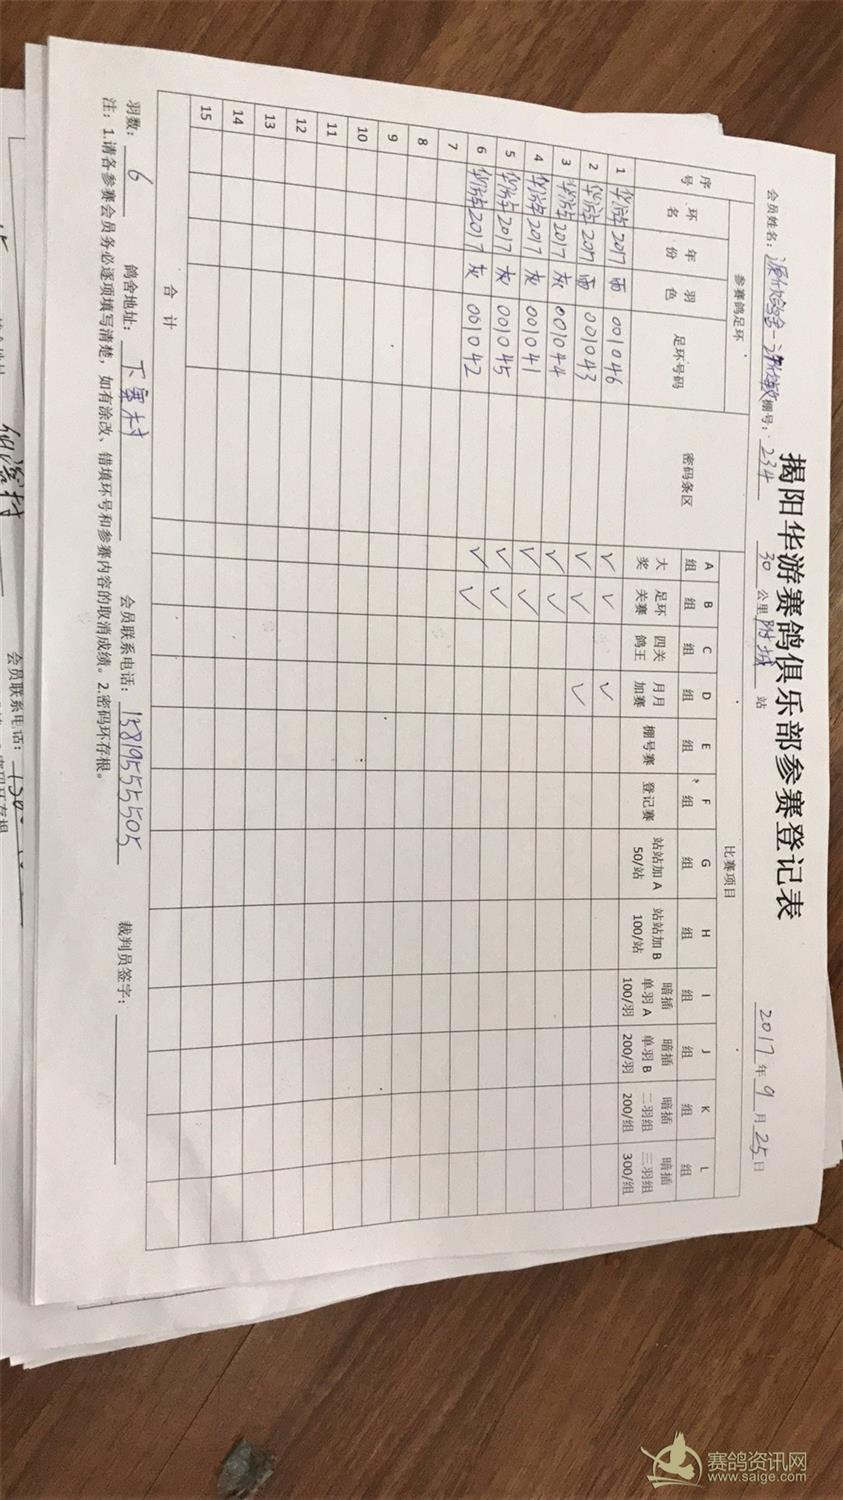 揭阳华游赛鸽俱乐部参赛登记表
会员姓名: 棚号: 234 30 公里 附城 站 2017 年 9 月 25 日
序号 参赛鸽足环 密码条区 比赛项目
环名 年份 羽色 足环号码 A组 B组 C组 D组 E组 F组 G组 H组 I组 J组 K组 L组
大奖 足环关赛 四关鸽王 月月加赛 棚号赛 登记赛 站站加A 50/站 站站加B 100/站 暗插单羽A 100/羽 暗插单羽B 200/羽 暗插二羽组 200/组 暗插三羽组 300/组
1 华游 2017 雨 001046 ✓ ✓ ✓
2 华游 2017 雨 001043 ✓ ✓ ✓
3 华游 2017 灰 001044 ✓ ✓
4 华游 2017 灰 001041 ✓ ✓
5 华游 2017 灰 001045 ✓ ✓
6 华游 2017 灰 001042 ✓ ✓
7
8
9
10
11
12
13
14
15
合计
羽数: 6 鸽舍地址: 下寨村 会员联系电话: 15819555505 裁判员签字:
注: 1.请各参赛会员务必逐项填写清楚, 如有涂改、错填环号和参赛内容的取消成绩。2.密码环存根。
会员联系电话:
赛鸽资讯网
www.saige.com